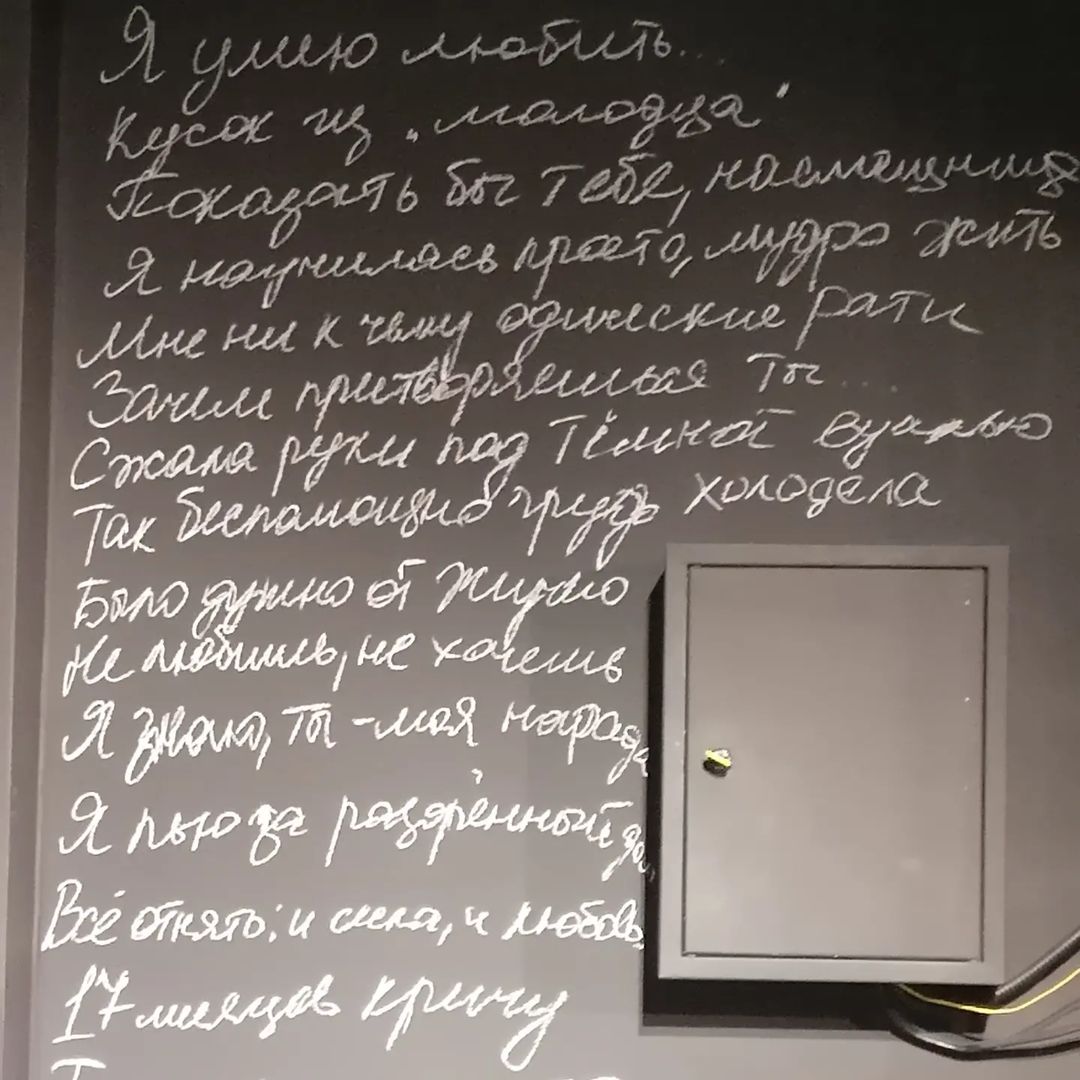 Я умею любить...
Кусок из „молодца"
Показать бы тебе, насмешнице
Я научилась просто, мудро жить
Мне ни к чему одические рати
Зачем притворяешься ты....
Сжала руки под тёмной вуалью
Так беспомощно грудь холодела
Было душно от жгучего
Не любишь, не хочешь
Я знаю, ты - моя награда
Я пью за разорённый дом,
Всё отнято: и сила, и любовь,
17 месяцев кричу